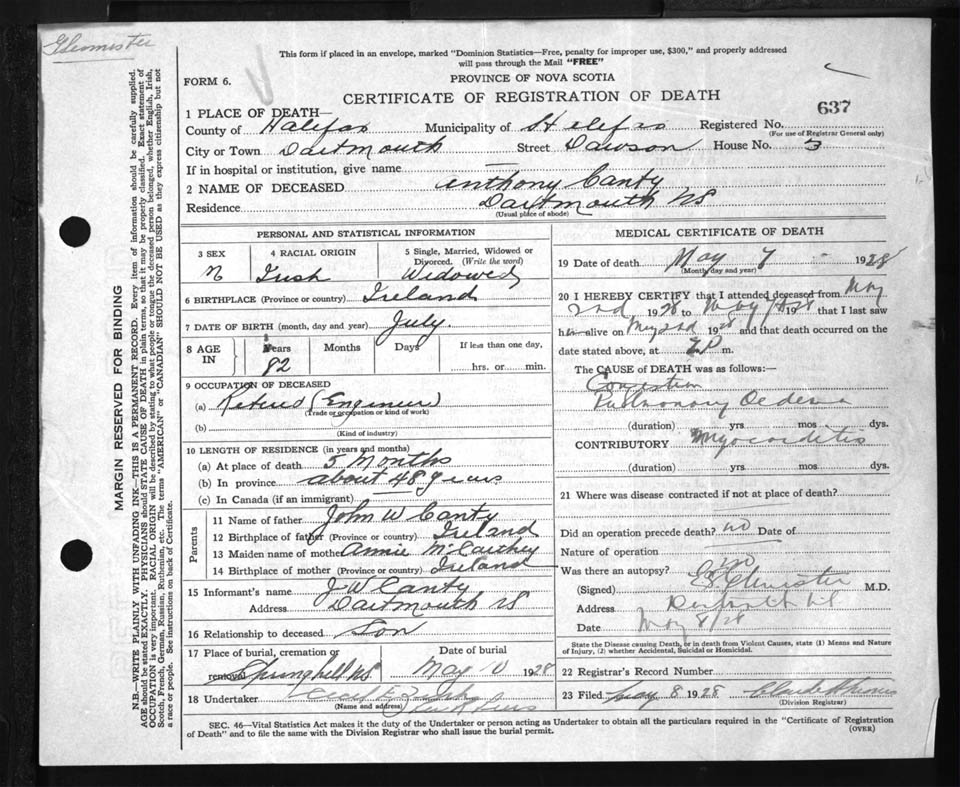 Glenister
This form if placed in an envelope, marked "Dominion Statistics—Free, penalty for improper use, $300," and properly addressed
will pass through the Mail "FREE"
FORM 6.
PROVINCE OF NOVA SCOTIA
CERTIFICATE OF REGISTRATION OF DEATH
637
1 PLACE OF DEATH—
County of Halifax Municipality of Halifax Registered No.
(For use of Registrar General only)
City or Town Dartmouth Street Dawson House No. 3
If in hospital or institution, give name —
2 NAME OF DECEASED Anthony Canty
Residence Dartmouth NS
(Usual place of abode)
PERSONAL AND STATISTICAL INFORMATION
3 SEX 4 RACIAL ORIGIN 5 Single, Married, Widowed or
Divorced. (Write the word)
M Irish Widowed
6 BIRTHPLACE (Province or country) Ireland
7 DATE OF BIRTH (month, day and year) July.
8 AGE IN Years Months Days If less than one day,
82 hrs. or min.
9 OCCUPATION OF DECEASED
(a) Retired (Engineer)
(Trade or occupation or kind of work)
(b)
(Kind of industry)
10 LENGTH OF RESIDENCE (in years and months)
(a) At place of death 5 Months
(b) In province about 48 years
(c) In Canada (if an immigrant) —
Parents
11 Name of father John W Canty
12 Birthplace of father (Province or country) Ireland
13 Maiden name of mother Annie McCarthey
14 Birthplace of mother (Province or country) Ireland
15 Informant's name J W Canty
Address Dartmouth NS
16 Relationship to deceased Son
17 Place of burial, cremation or Date of burial
removal Springhill NS May 10 1928
18 Undertaker
(Name and address)
MEDICAL CERTIFICATE OF DEATH
19 Date of death May 7 - 1928
(Month, day and year)
20 I HEREBY CERTIFY that I attended deceased from May
2nd, 1928 to May 7 1928 that I last saw
him alive on May 2nd 1928 and that death occurred on the
date stated above, at P m.
The CAUSE OF DEATH was as follows:—
Congestion
Pulmonary Oedema
(duration) yrs. mos. dys.
CONTRIBUTORY Myocarditis
(duration) yrs. mos. dys.
21 Where was disease contracted if not at place of death?
Did an operation precede death? no Date of
Nature of operation
Was there an autopsy? no
(Signed) Glenister M.D.
Address
Date May 8/28
State the Disease causing Death, or in death from Violent Causes, state (1) Means and Nature
of Injury, (2) whether Accidental, Suicidal or Homicidal.
22 Registrar's Record Number
23 Filed May 8 1928 Claude
(Division Registrar)
SEC. 46—Vital Statistics Act makes it the duty of the Undertaker or person acting as Undertaker to obtain all the particulars required in the "Certificate of Registration
of Death" and to file the same with the Division Registrar who shall issue the burial permit.
(OVER)
MARGIN RESERVED FOR BINDING
N.B.—WRITE PLAINLY WITH UNFADING INK—THIS IS A PERMANENT RECORD. Every item of information should be carefully supplied.
AGE should be stated EXACTLY. PHYSICIANS should STATE CAUSE OF DEATH in plain terms, so that it may be properly classified. Exact statement of
OCCUPATION is very important. RACIAL ORIGIN will be described by stating to what people or tongue the deceased person belonged, whether English, Irish,
Scotch, French, German, Russian, Ruthenian, etc. The terms "AMERICAN" or "CANADIAN" SHOULD NOT BE USED as they express citizenship but not
a race or people. See instructions on back of Certificate.